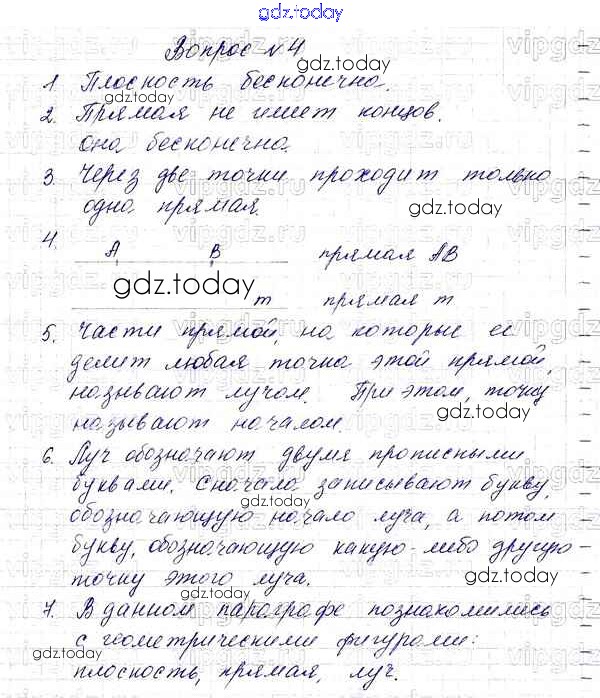 gdz.today
Вопрос №4
1. Плоскость бесконечна.
2. Прямая не имеет концов.
Она бесконечна.
3. Через две точки проходит только
одна прямая.
4. A B прямая AB
m прямая m
5. Части прямой, на которые её
делит любая точка этой прямой,
называют лучом. При этом, точку
называют началом.
6. Луч обозначают двумя прописными
буквами. Сначала записывают букву,
обозначающую начало луча, а потом
букву, обозначающую какую-либо другую
точку этого луча.
7. В данном параграфе познакомились
с геометрическими фигурами:
плоскость, прямая, луч.
gdz.today
gdz.today
gdz.today
gdz.today
gdz.today
gdz.today
gdz.today
gdz.today
vipgdz.ru